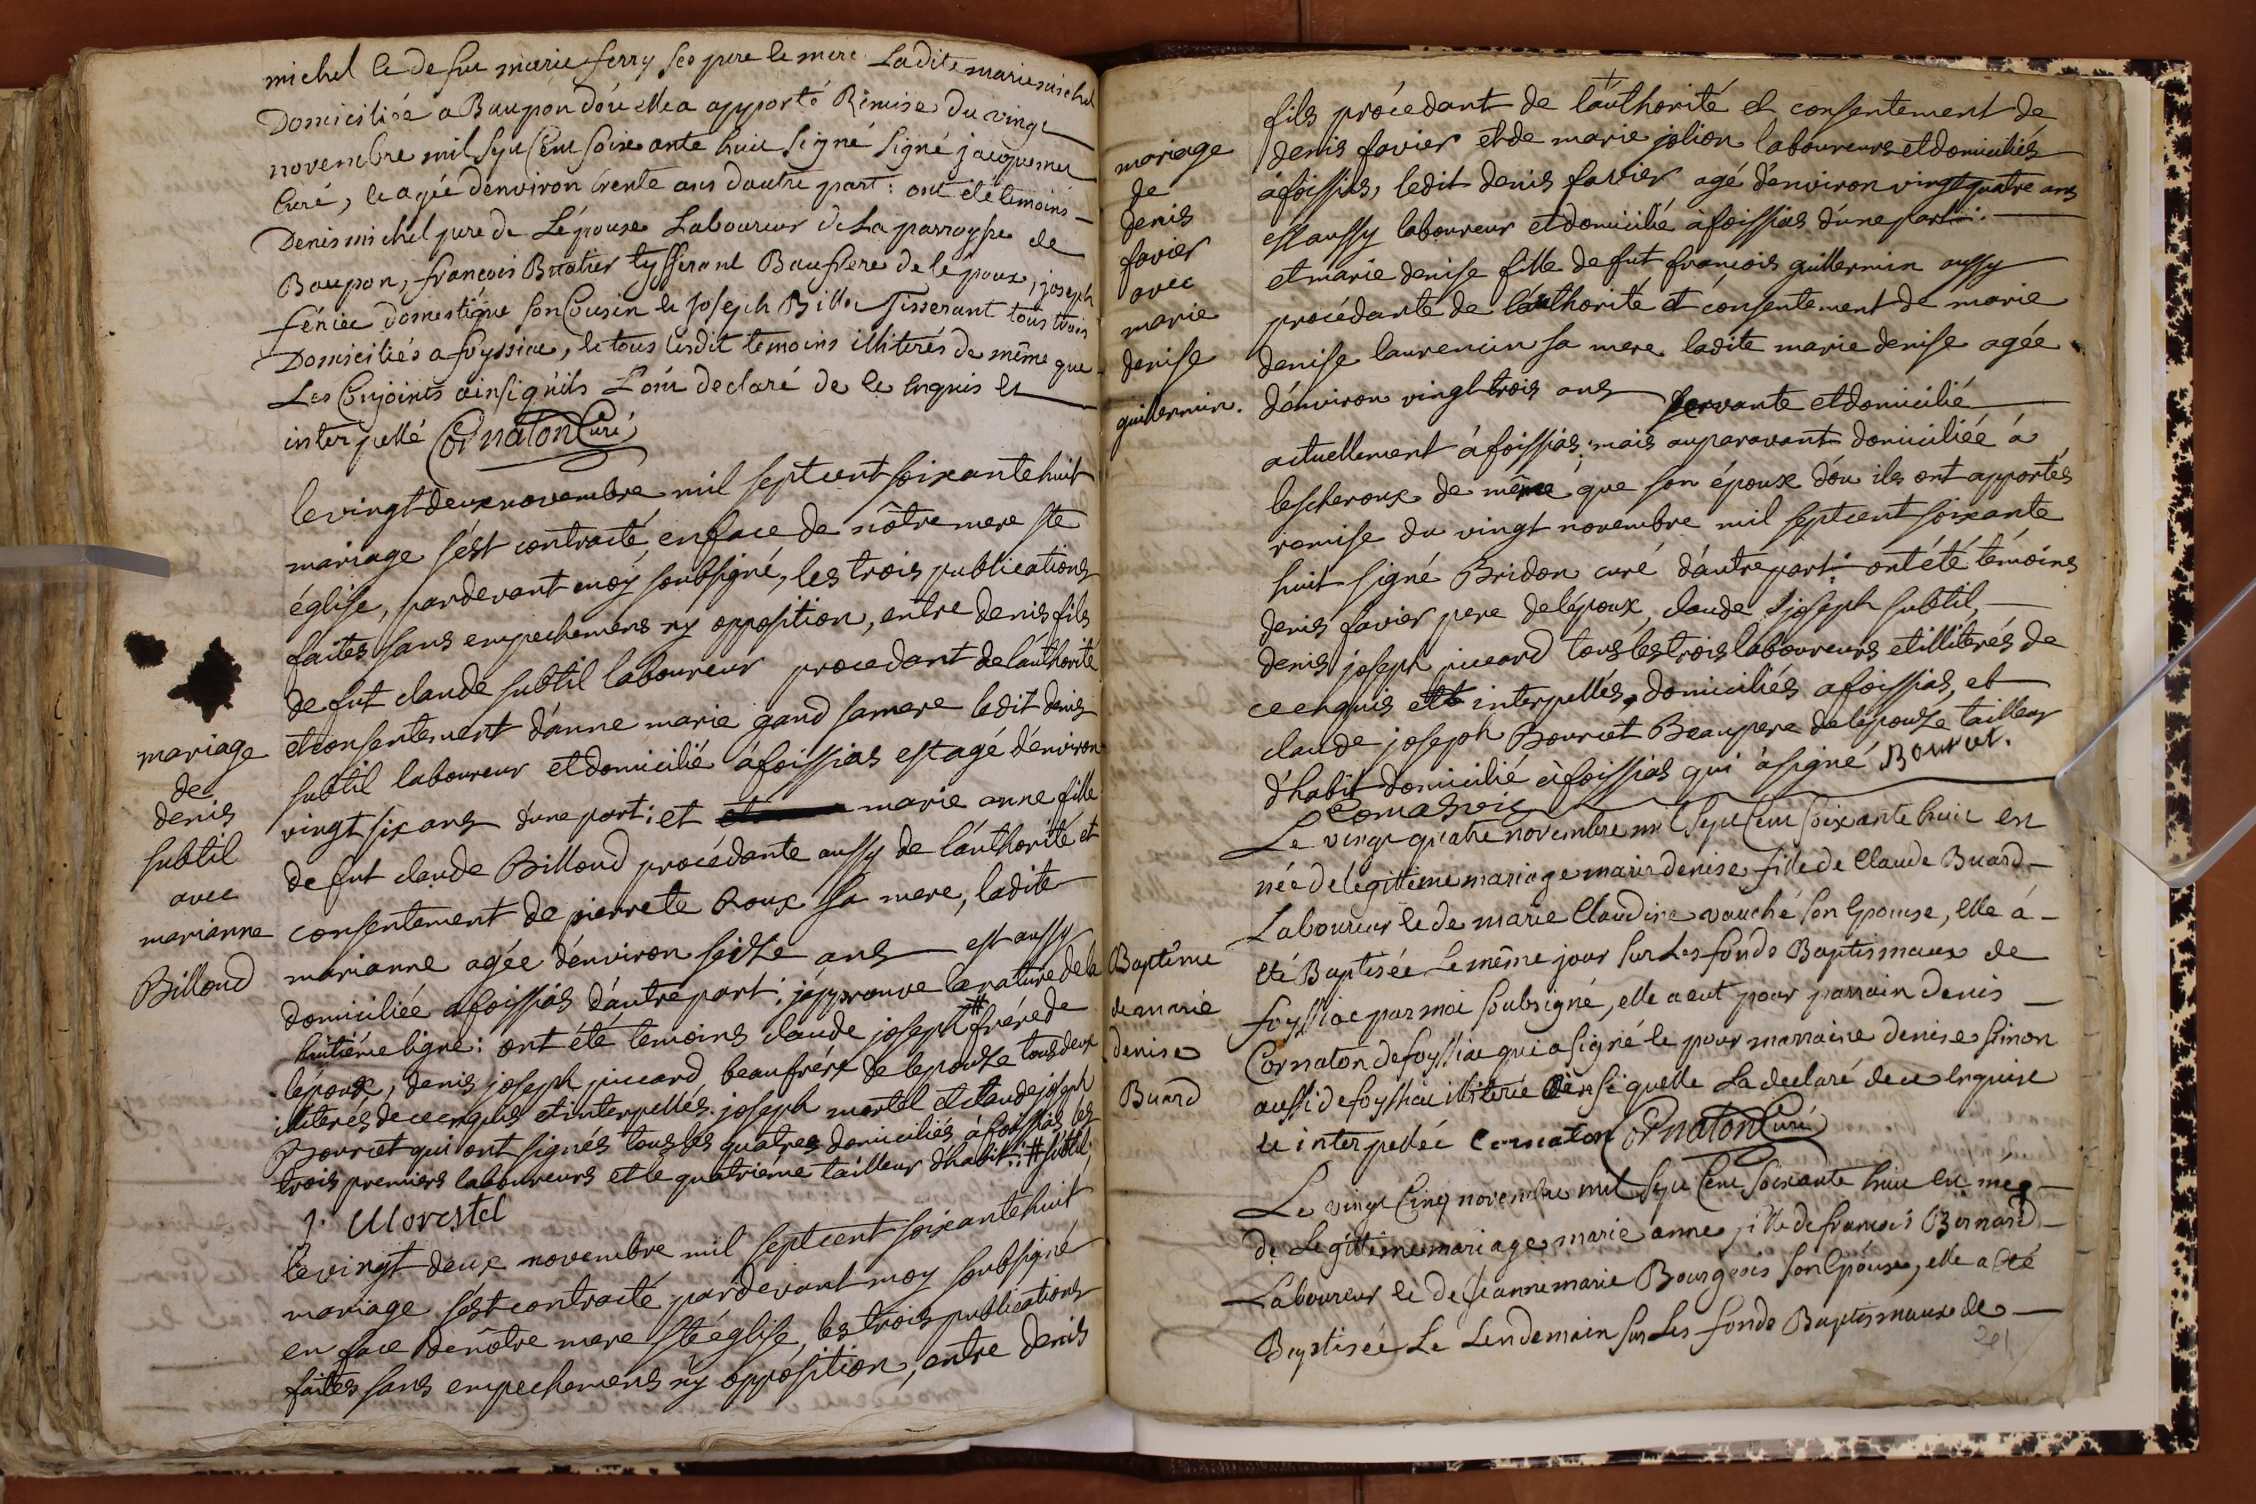 michel et de fue marie ferry ses pere et mere Ladite marie michel
Domiciliée a Baupon dóu elle a apporté Remise du vingt
novembre mil sept Cent soixante huit signé signé jacquemet
Curé, et agée d'environ trente ans dautre part: ont été temoins
Denis michel pere de Lépouse Laboureur de La parroysse de
Baupon, francois Buatier tysserant Baufrere de lépoux, joseph
féniec domestique son Cousin et Joseph Billoc Tisserant tous trois
Domiciliés a foyssiac, et tous lesdit temoins illiterés de même que
Les Conjoints ainsi qu'ils L'ont declaré de ce enquis et
interpellé Cornaton Curé
le vingt deux novembre mil sept cent soixante huit
mariage s'ést contracté en face de nôtre mere ste
église, pardevant moy soubsigné, les trois publications
faites sans empechemens ny opposition, entre denis fils
de fut claude subtil laboureur procedant de láuthorité
et consentement d'anne marie gand sa mere ledit denis
subtil laboureur et domicilié à foissias est agé d'environ
vingt six ans d'une part: et et marie anne fille
de fut claude Billoud procédante aussy de láuthorité et
consentement de pierrete Roux sa mere, ladite
marianne agée d'environ seize ans est aussy
domiciliée a foissias d'autre part: j'approuve la rature de la
huitième ligne: ont été temoins claude joseph # frére de
lépoux, denis joseph piccard beaufrére de lepouze tous deux
illiterés de ce enquis et interpellés joseph mortel et claude joseph
Bourcet qui ont signés tous les quatres domiciliés à foissias les
trois premiers laboureurs et le quatrieme tailleur d'habit :: # subtil
j. Morestel
le vingt deux novembre mil septcent soixante huit
mariage s'est contracté pardevant moy soubsigné
en face de nôtre mere ste église, les trois publications
faites sans empechemens ny opposition, entre denis
mariage
de
denis
subtil
avec
marianne
Billoud
fils procedant de láuthorité et consentement de
denis favier et de marie jolion laboureurs et domiciliés
à foissias, ledit denis favier agé d'environ vingt quatre ans
est aussy laboureur et domicilié à foissias d'une part
et marie denise fille de fut francois guillermin aussy
procédante de láuthorité et consentement de marie
denise laurencin sa mere ladite marie denise agée
d'environ vingt trois ans servante et domicilié
actuellement à foissias, mais auparavant domiciliée à
lescheroux de même que son époux d'ou ils ont apportés
remise du vingt novembre mil septcent soixante
huit signé Bridon curé d'autre part: ont été témoins
denis favier pere de lépoux, claude joseph subtil,
denis joseph piccard tous les trois laboureurs et illiterés de
ce enquis et interpellés, domiciliés a foissias, et
claude joseph Bourcet Beaupere de lépouze tailleur
d'habit domicilié à foissias qui à signé Bourcet.
mariage
de
denis
favier
avec
marie
denise
guillermin.
Le vingt quatre novembre mil sept Cent soixante huit est
née de légitime mariage marie denise fille de Claude Buard
Laboureur et de marie Claudine vauché son Epouse, elle á
été Baptisée Le même jour sur Les fonds Baptismaux de
foyssiac par moi soubsigné, elle a eut pour parrain denis
Cornaton de foyssiac qui a signé et pour marraine denise simon
aussi de foyssiac illiterée ainsi quelle La declaré de ce enquise
et interpellée Cornaton Cornaton Curé
Baptême
de marie
denise
Buard
Le vingt Cinq novembre mil sept Cent soixante huit est née
de Légitime mariage marie anne fille de francois Bernard
Laboureur et de jeanne marie Bourgeois son Epouse, elle a été
Baptisée Le Lendemain sur Les fonds Baptismaux de